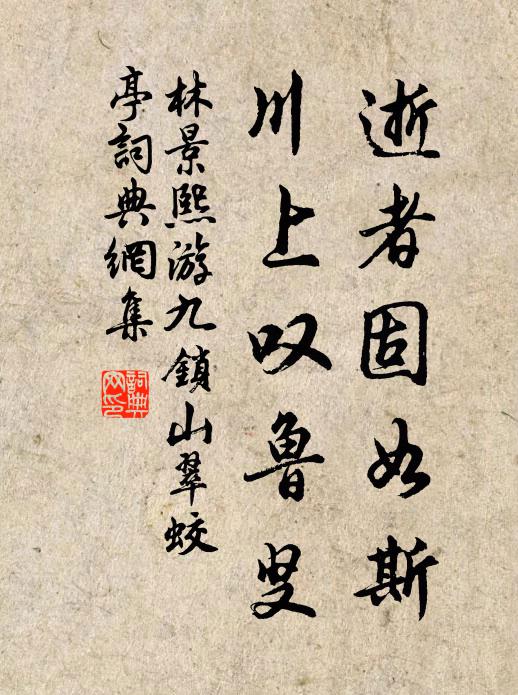 逝者固如斯
川上叹鲁叟
林景熙游九鎖山翠蛟
亭詞典網集
詞典网印